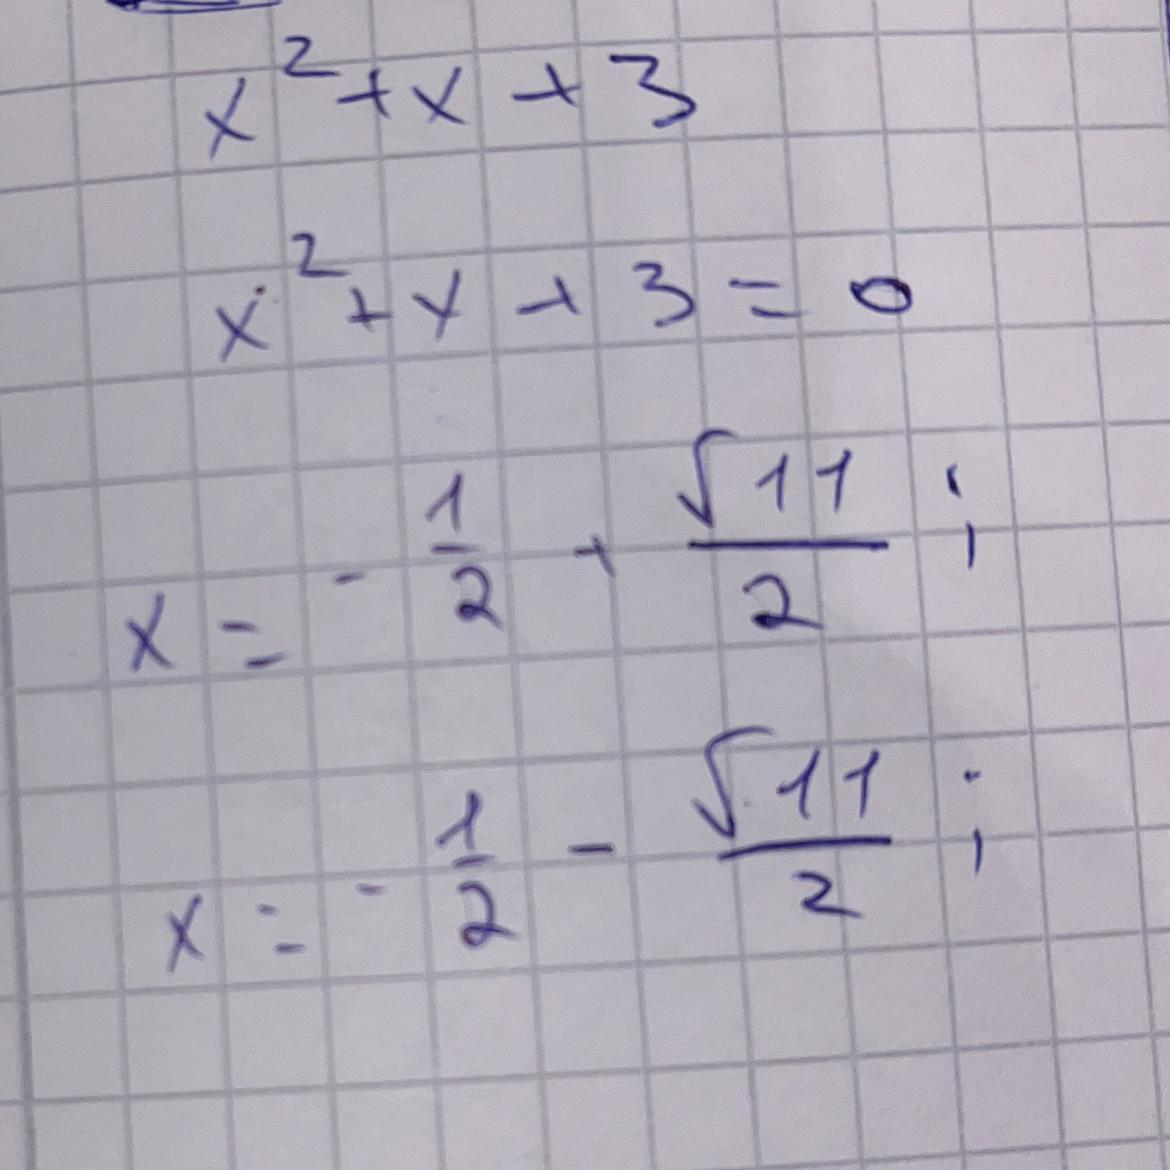 x² + x + 3
x² + x + 3 = 0
x = - 1/2 + √11/2 i
x = - 1/2 - √11/2 i